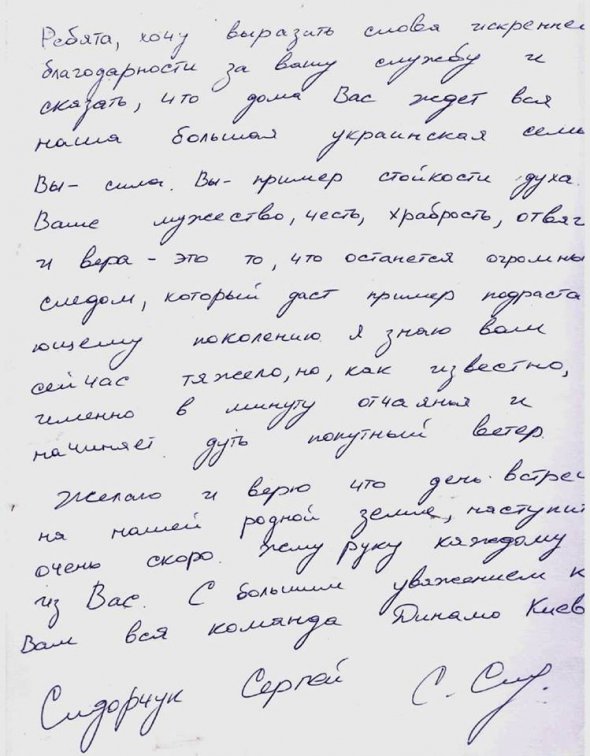 Ребята, хочу выразить слова искренней
благодарности за вашу службу и
сказать, что дома Вас ждет вся
наша большая украинская семь
Вы- сила. Вы- пример стойкости духа.
Ваше мужество, честь, храбрость, отваг
и вера - это то, что останется огромны
следом, который даст пример подраста
ющему поколению. Я знаю вам
сейчас тяжело, но, как известно,
именно в минуту отчаянья и
начинает дуть попутный ветер.
Желаю и верю что день встреч
на нашей родной земле, наступит
очень скоро. Жму руку каждому
из Вас. С большим уважением к
Вам вся команда Динамо Киев
Сидорчук Сергей